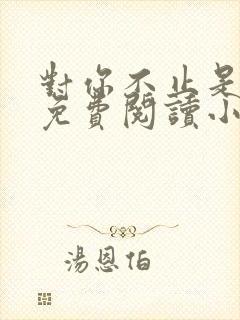 對你不止是
免費閱讀小
湯恩伯